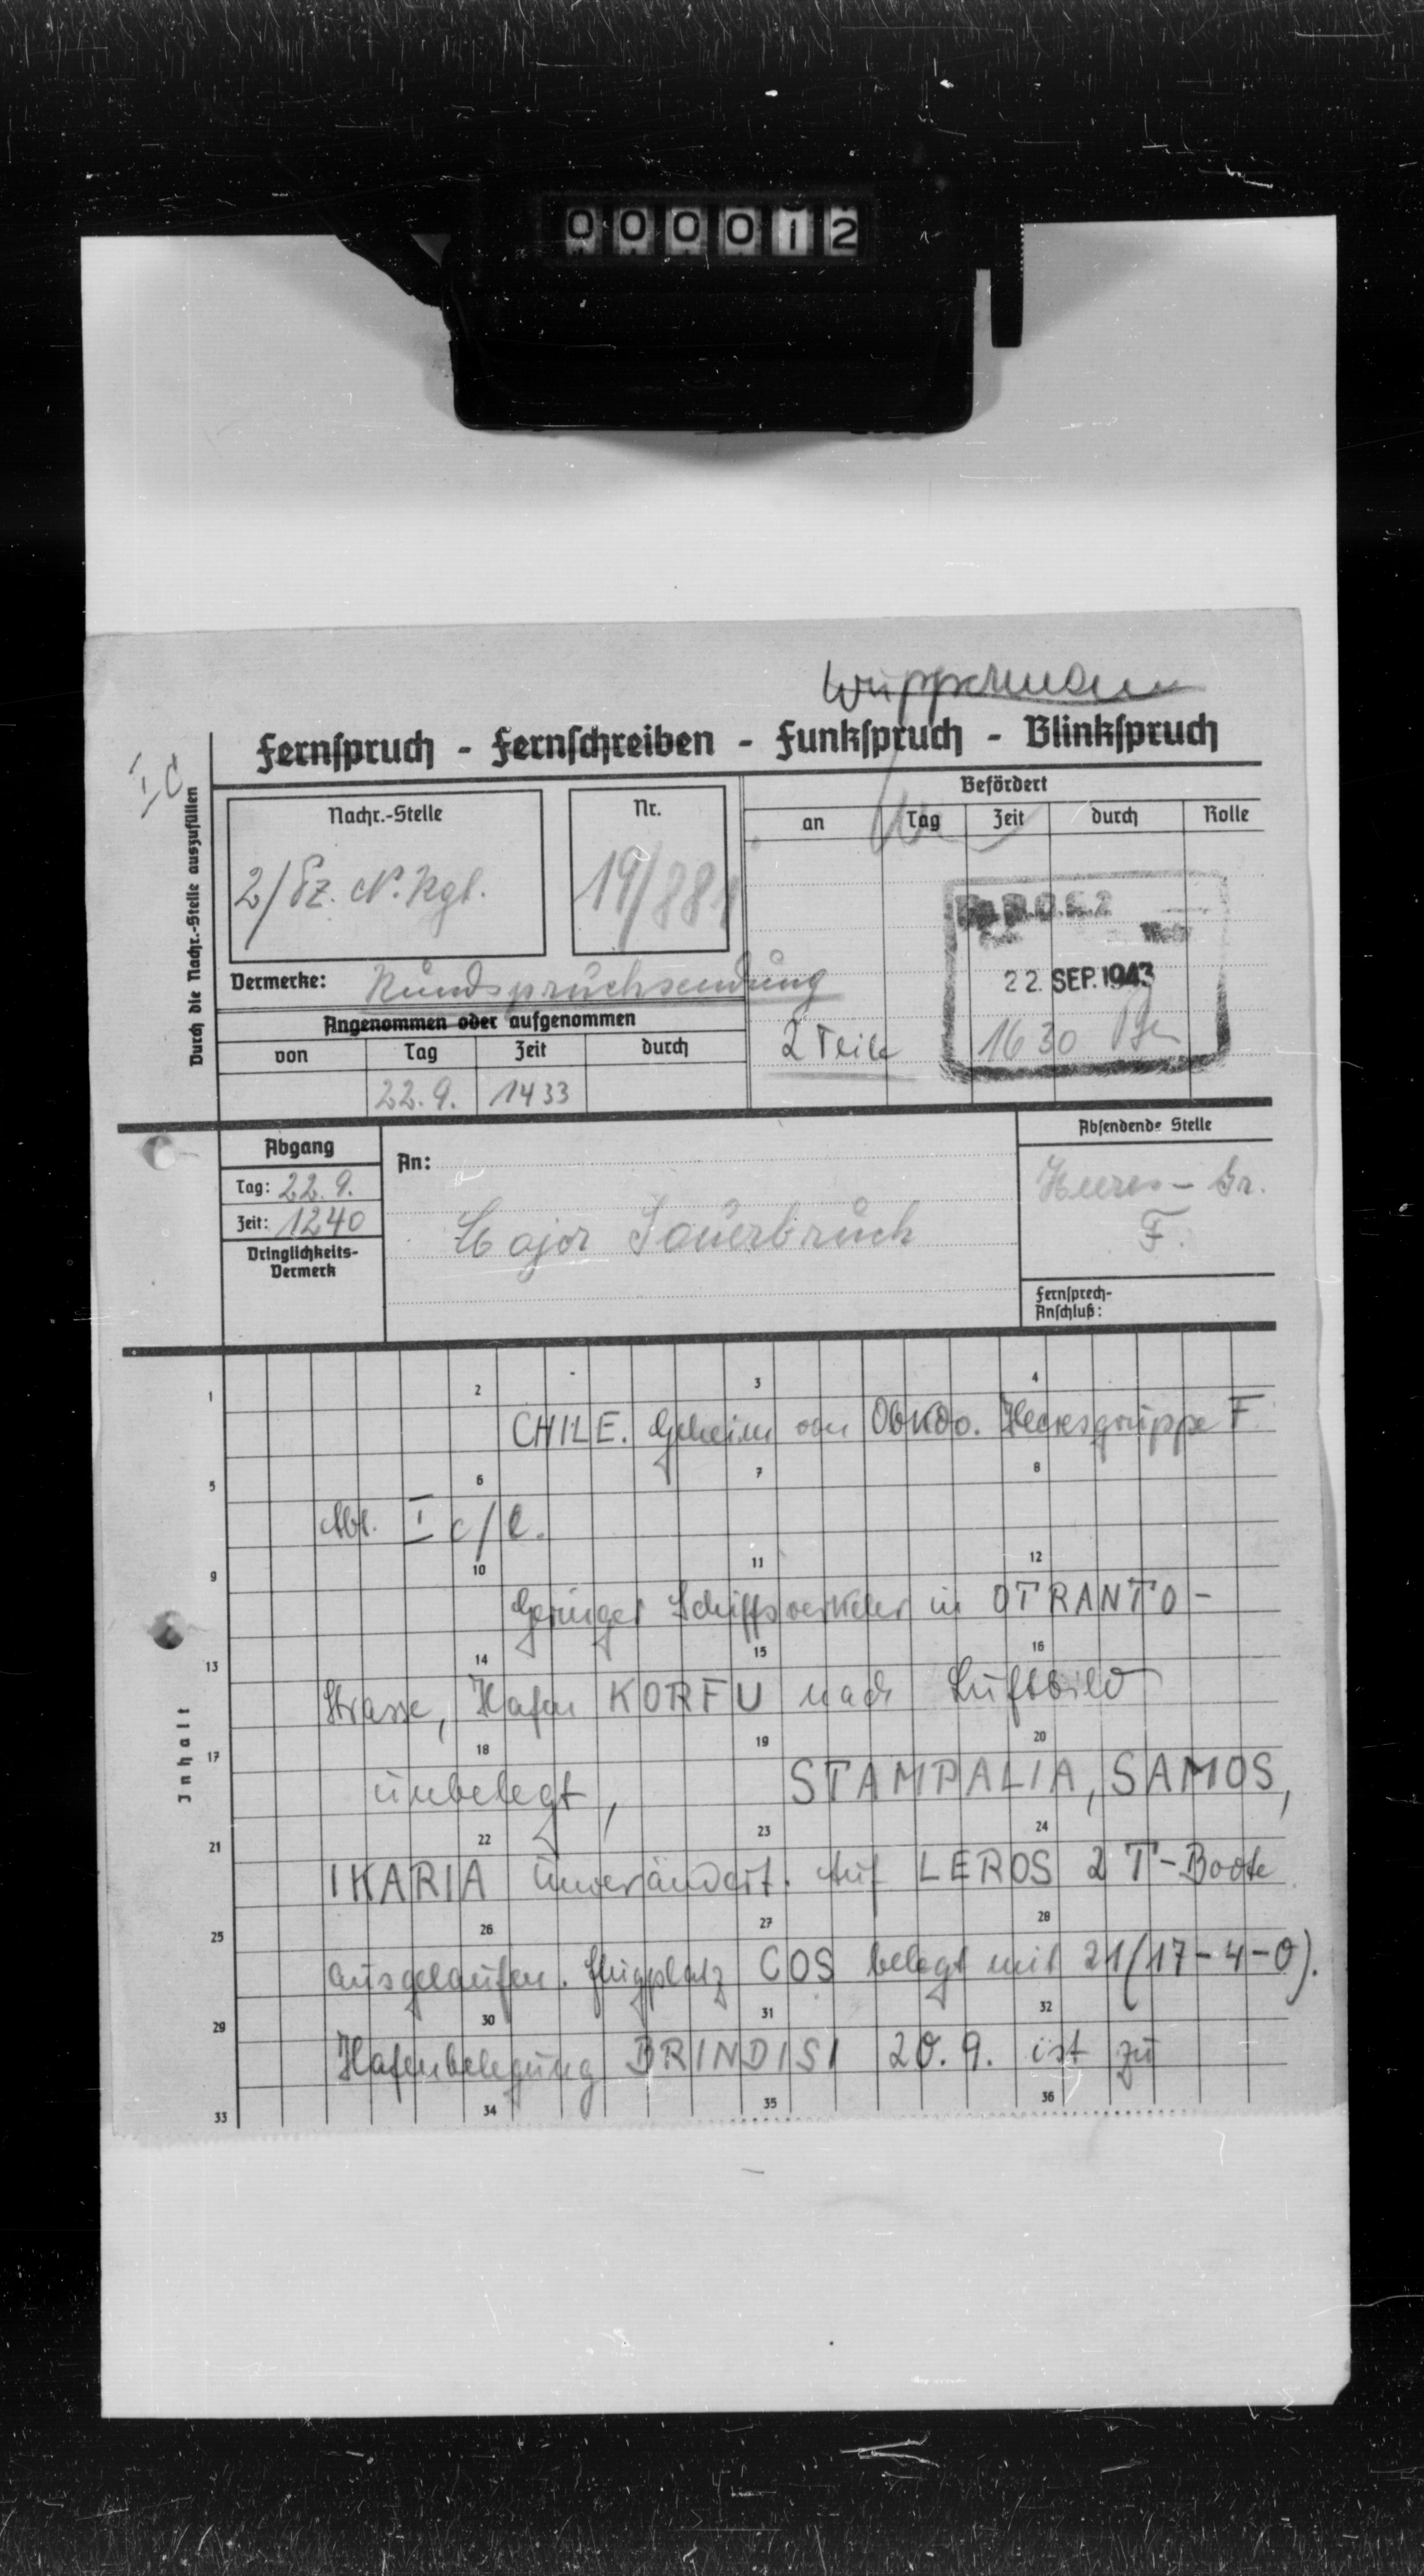 000012
Wuppermann
Fernspruch - Fernschreiben - Funkspruch - Blinkspruch
I c
Durch die Nachr.-Stelle auszufüllen
Nachr.-Stelle
2/Pz. N. Rgt.
Nr.
19/881
Befördert
an
Tag
Zeit
durch
Rolle
Vermerke: Rundspruchsendung
22. SEP. 1943
1630
2 Teile
Angenommen oder aufgenommen
von
Tag
Zeit
durch
22.9.
1433
Abgang
Tag: 22.9.
Zeit: 1240
Dringlichkeits-
Vermerk
An:
Major Sauerbruch
Absendende Stelle
Heeres-Gr.
F.
Fernsprech-
Anschluß:
Inhalt
1 2 3 4
CHILE. Geheim von Obkdo. Heeresgruppe F
5 6 7 8
Abt. I c/
9 10 11 12
Geringer Schiffsverkehr in OTRANTO-
13 14 15 16
Strasse, Hafen KORFU nach Luftbild
17 18 19 20
unbelegt, STAMPALIA, SAMOS,
21 22 23 24
IKARIA unverändert. Auf LEROS 2 T-Boote
25 26 27 28
ausgelaufen. Flugplatz COS belegt mit 21(17-4-0).
29 30 31 32
Hafenbelegung BRINDISI 20.9. ist zu
33 34 35 36